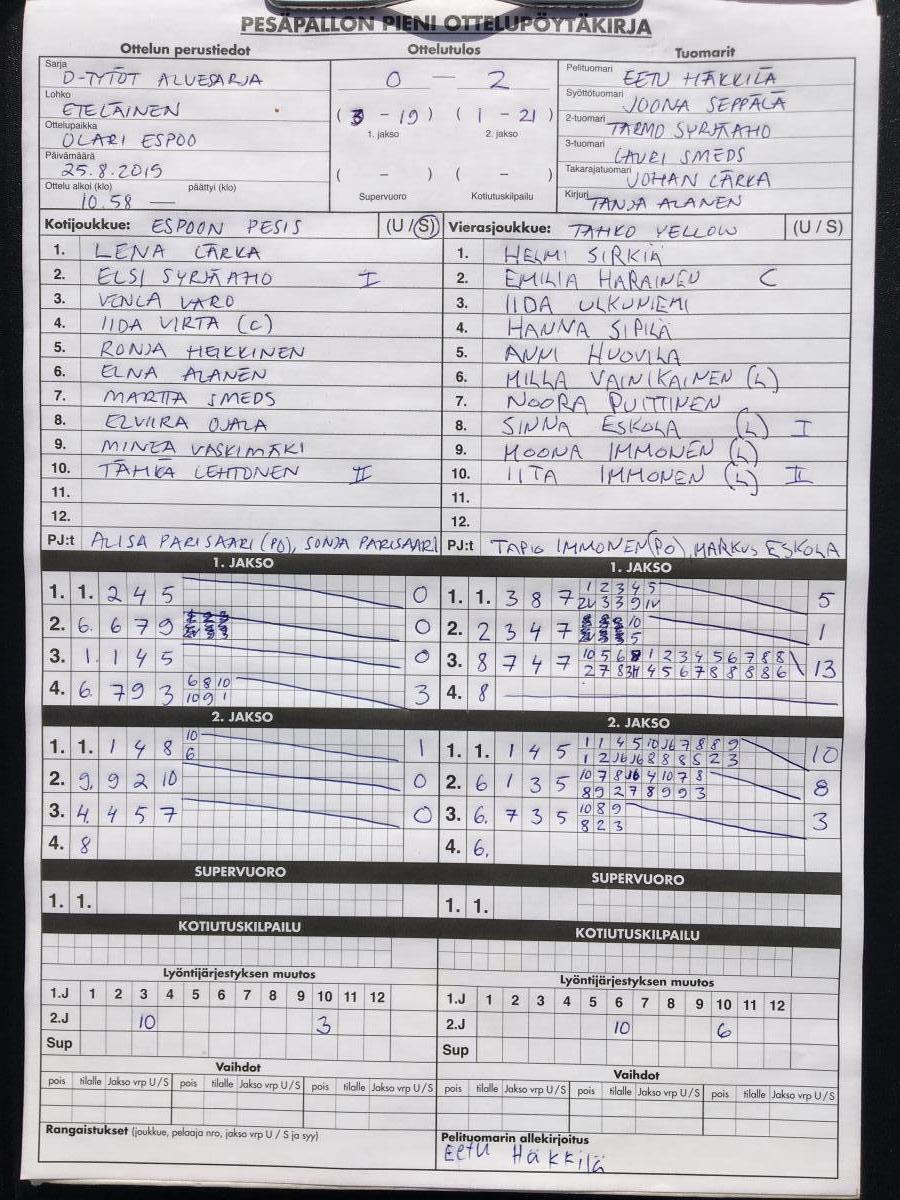 PESÄPALLON PIENI OTTELUPÖYTÄKIRJA
Ottelun perustiedot
Sarja
D-TYTÖT ALUESARJA
Lohko
ETELÄINEN
Ottelupaikka
OLARI ESPOO
Päivämäärä
25.8.2019
Ottelu alkoi (klo) päättyi (klo)
10.58 —
Ottelutulos
0 — 2
(3 - 19) (1 - 21)
1. jakso 2. jakso
( - ) ( - )
Supervuoro Kotiutuskilpailu
Tuomarit
Pelituomari EETU HÄKKILÄ
Syöttötuomari JOONA SEPPÄLÄ
2-tuomari TARMO SYRJÄAHO
3-tuomari LAURI SMEDS
Takarajatuomari JOHAN LÄRKA
Kirjuri TANJA ALANEN
Kotijoukkue: ESPOON PESIS (U / S)
1. LENA LÄRKA
2. ELSI SYRJÄAHO I
3. VENLA VARO
4. IIDA VIRTA (C)
5. RONJA HEIKKINEN
6. ELNA ALANEN
7. MARTTA SMEDS
8. ELVIIRA OJALA
9. MINEA VASKIMÄKI
10. TÄHKÄ LEHTONEN II
11.
12.
PJ:t ALISA PARISAARI (PO), SONJA PARISAARI
Vierasjoukkue: TAHKO YELLOW (U / S)
1. HELMI SIRKIÄ
2. EMILIA HARAINEN C
3. IIDA ULKUNIEMI
4. HANNA SIPILÄ
5. ANNI HUOVILA
6. MILLA VAINIKAINEN (L)
7. NOORA PUITTINEN
8. SINNA ESKOLA (L) I
9. MOONA IMMONEN (L)
10. IITA IMMONEN (L) II
11.
12.
PJ:t TAPIO IMMONEN (PO), MARKUS ESKOLA
1. JAKSO
1. 1. 2 4 5 0
2. 6. 6 7 9 0
3. 1. 1 4 5 0
4. 6. 7 9 3 6 8 10 3
10 9 1
2. JAKSO
1. 1. 1 4 8 10 1
6
2. 9. 9 2 10 0
3. 4. 4 5 7 0
4. 8
SUPERVUORO
1. 1.
KOTIUTUSKILPAILU
Lyöntijärjestyksen muutos
1.J 1 2 3 4 5 6 7 8 9 10 11 12
2.J 10 3
Sup
Vaihdot
pois tilalle Jakso vrp U / S pois tilalle Jakso vrp U / S pois tilalle Jakso vrp U / S
Rangaistukset (joukkue, pelaaja nro, jakso vrp U / S ja syy)
1. JAKSO
1. 1. 3 8 7 1 2 3 4 5 5
3 3 9
2. 2 3 4 7 10 1
5
3. 8 7 4 7 10 5 6 8 1 2 3 4 5 6 7 8 8 13
2 7 8 4 5 6 7 8 8 8 8 6
4. 8
2. JAKSO
1. 1. 1 4 5 1 1 4 5 10 16 7 8 8 9 10
1 2 16 16 8 8 8 5 2 3
2. 6 1 3 5 10 7 8 16 4 10 7 8 8
8 9 2 7 8 9 9 3
3. 6. 7 3 5 10 8 9 3
8 2 3
4. 6.
SUPERVUORO
1. 1.
KOTIUTUSKILPAILU
Lyöntijärjestyksen muutos
1.J 1 2 3 4 5 6 7 8 9 10 11 12
2.J 10 6
Sup
Vaihdot
pois tilalle Jakso vrp U / S pois tilalle Jakso vrp U / S pois tilalle Jakso vrp U / S
Pelituomarin allekirjoitus
Eetu Häkkilä